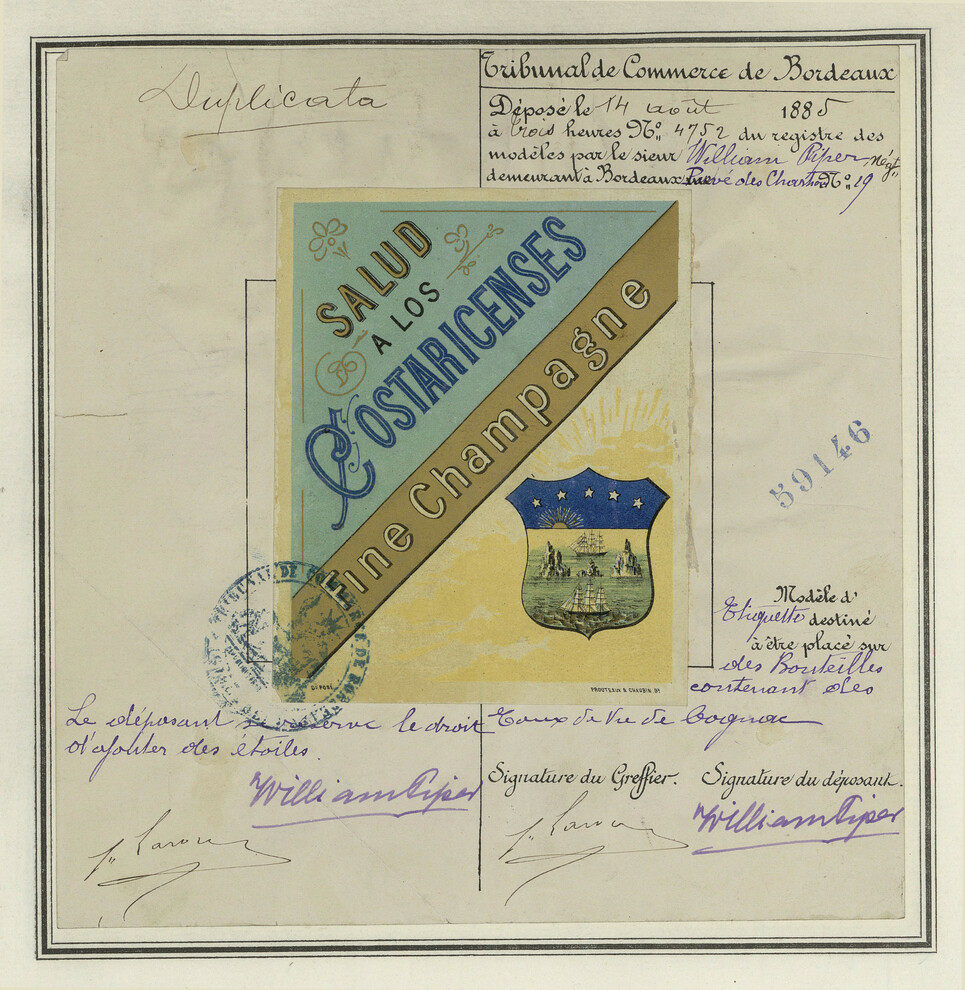 Duplicata
Tribunal de Commerce de Bordeaux
Déposé le 14 août 1885
à trois heures No. 4752 du registre des
modèles par le sieur William Piper, Négt
demeurant à Bordeaux Pavé des Chartrons No. 19
SALUD
A LOS
COSTARICENSES
Fine Champagne
DÉPOSÉ
59146
TRIBUNAL DE COMMERCE DE BORDEAUX
Modèle d'
Etiquette destiné
à être placé sur
des Bouteilles
contenant des
Eaux de Vie de Cognac
Le déposant se réserve le droit
d'ajouter des étoiles.
William Piper
Signature du Greffier.
Signature du déposant.
William Piper